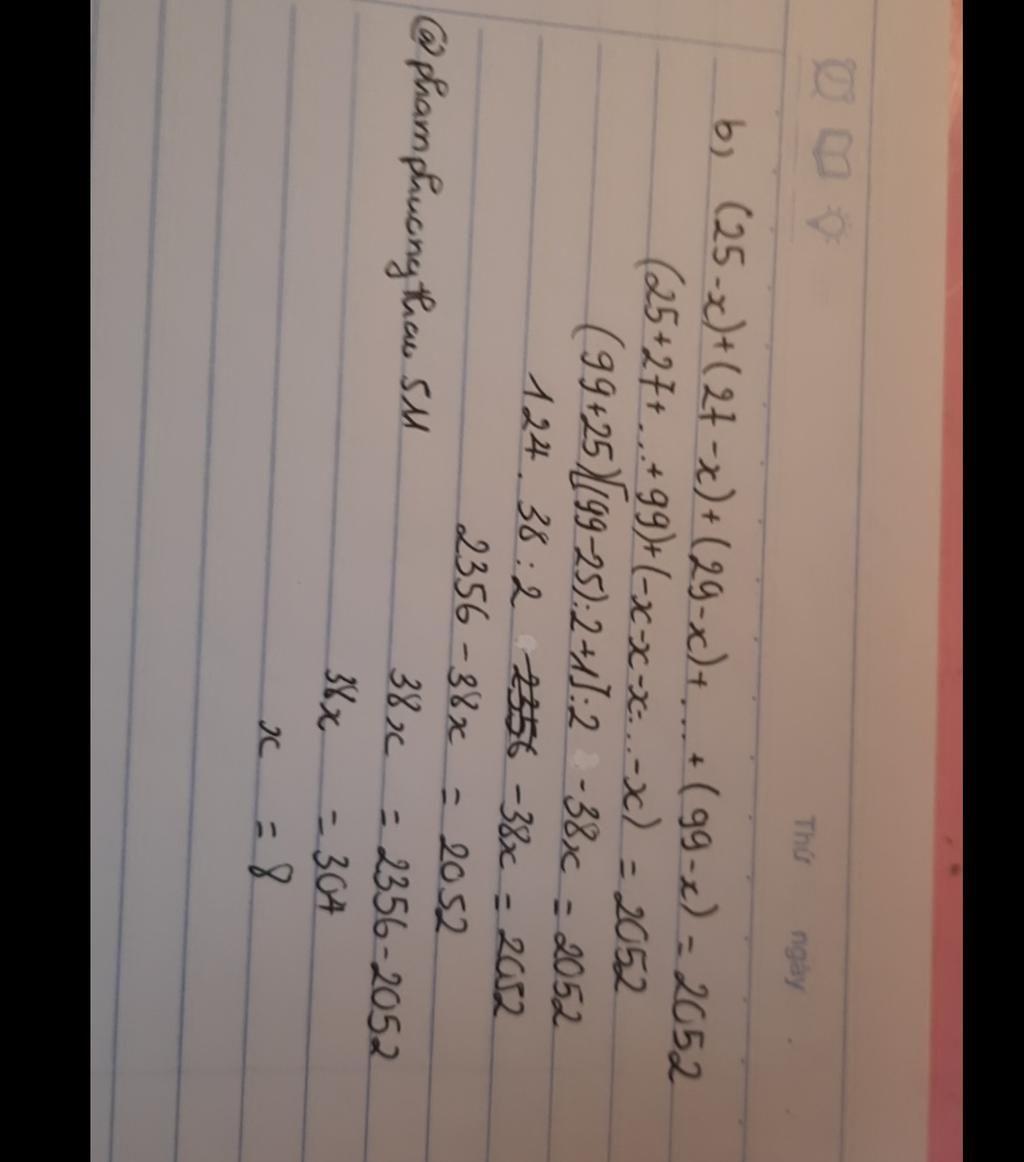 Thứ ngày
b) (25-x)+(27-x)+(29-x)+...+(99-x) = 2052
(25+27+...+99)+(-x-x-x...-x) = 2052
(99+25)[(99-25):2+1]:2 -38x = 2052
124.38:2 2356 -38x = 2052
2356-38x = 2052
38x = 2356-2052
38x = 304
x = 8
@phamphuongthao511